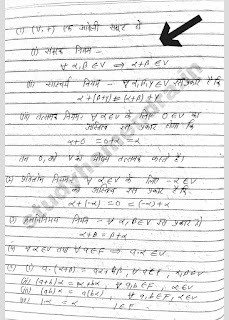 (1) (V,+) एक आबेली समूह है
(i) संवरक नियम -
∀ α,β ∈ V ⇒ α+β ∈ V
(ii) साहचर्य नियम - ∀ α,β,γ ∈ V इस प्रकार है कि
α+(β+γ) = (α+β)+γ
(iii) तत्समक नियम: ∀ α ∈ V के लिए 0 ∈ V का
अस्तित्व इस प्रकार होगा कि
α+0 = 0+α = α
तब 0, को V का योज्य तत्समक कहते है।
प्रतिलोम नियम - ∀ α ∈ V के लिए -α ∈ V
का अस्तित्व इस प्रकार है कि
α+(-α) = 0 = (-α)+α
क्रमविनिमय नियम - ∀ α,β ∈ V इस प्रकार है
α+β = β+α
∀ α ∈ V तथा ∀ a ∈ F ⇒ a.α ∈ V
(i) a.(α+β) = aα+aβ, ∀ a ∈ F, α,β ∈ V
(ii) (a+b)α = aα+bα, ∀ a,b ∈ F, α ∈ V
(iii) (ab)α = a(bα), ∀ a,b ∈ F, α ∈ V
1.α = α 1 ∈ F